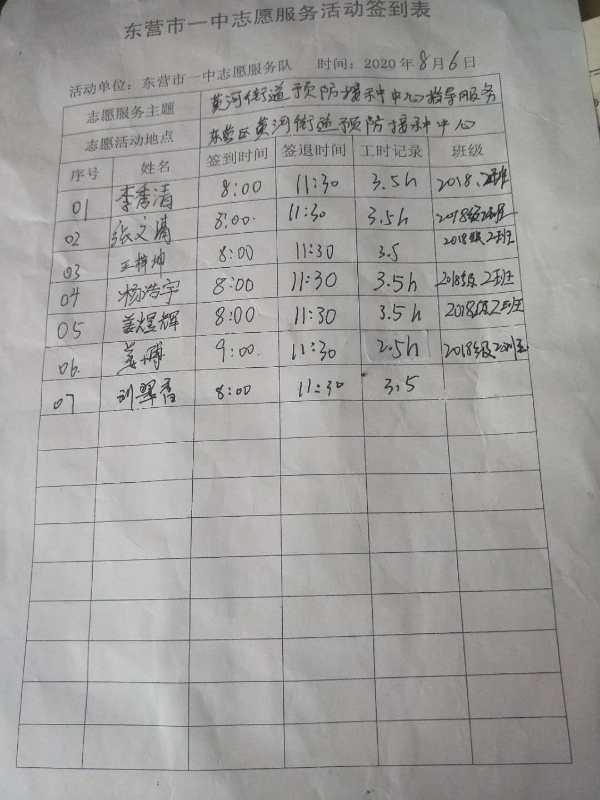 东营市一中志愿服务活动签到表
活动单位：东营市一中志愿服务队 时间：2020年8月6日
志愿服务主题 黄河街道预防接种中心指导服务
志愿活动地点 东营区黄河街道预防接种中心
序号 姓名 签到时间 签退时间 工时记录 班级
01 李秀清 8:00 11:30 3.5h 2018.2班
02 张文 8:00. 11:30 3.5h 2018级2班
03 王梓坤 8:00 11:30 3.5 2018级2班
04 杨浩宇 8:00 11:30 3.5h 2018级2班
05 姜煜辉 8:00 11:30 3.5h 2018级2班
06. 姜博 9:00. 11:30 2.5h 2018级
07 刘翠香 8:00 11:30 3.5